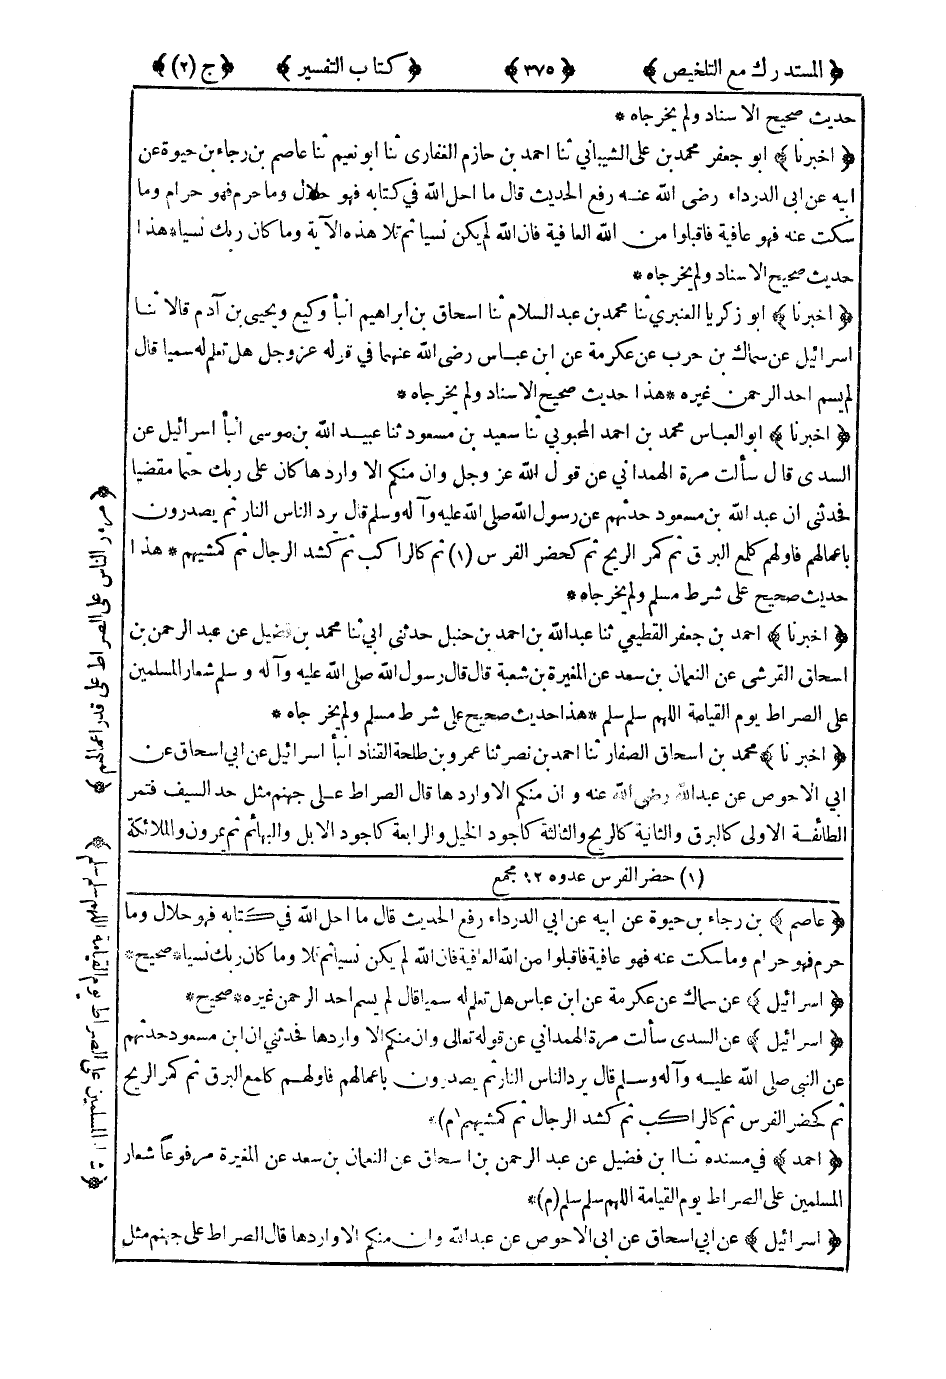 ﴿ المستدرك مع التلخيص ﴾ ﴿ ٣٧٥ ﴾ ﴿ كتاب التفسير ﴾ ﴿ ج (٢) ﴾
حديث صحيح الاسناد ولم يخرجاه *
﴿ اخبرنا ﴾ ابو جعفر محمد بن على الشيباني ثنا احمد بن حازم الغفارى ثنا ابو نعيم ثنا عاصم بن رجاء بن حيوة عن
ابيه عن ابى الدرداء رضى الله عنه رفع الحديث قال ما احل الله في كتابه فهو حلال وما حرم فهو حرام وما
سكت عنه فهو عافية فاقبلوا من الله العافية فان الله لم يكن نسيا ثم تلا هذه الآية وما كان ربك نسيا * هذا
حديث صحيح الاسناد ولم يخرجاه *
﴿ اخبرنا ﴾ ابو زكريا العنبري ثنا محمد بن عبد السلام ثنا اسحاق بن ابراهيم انبأ وكيع ويحيى بن آدم قالا ثنا
اسرائيل عن سماك بن حرب عن عكرمة عن ابن عباس رضى الله عنهما في قوله عز وجل هل تعلم له سميا قال
لم يسم احد الرحمن غيره * هذا حديث صحيح الاسناد ولم يخرجاه *
﴿ اخبرنا ﴾ ابو العباس محمد بن احمد المحبوبي ثنا سعيد بن مسعود ثنا عبيد الله بن موسى انبأ اسرائيل عن
السدى قال سألت مرة الهمداني عن قول الله عز وجل وان منكم الا واردها كان على ربك حتما مقضيا
فحدثنى ان عبد الله بن مسعود حدثهم عن رسول الله صلى الله عليه وآله وسلم قال يرد الناس النار ثم يصدرون
باعمالهم فاولهم كلمع البرق ثم كمر الريح ثم كحضر الفرس (١) ثم كالراكب ثم كشد الرجال ثم كمشيهم * هذا
حديث صحيح على شرط مسلم ولم يخرجاه *
﴿ اخبرنا ﴾ احمد بن جعفر القطيعي ثنا عبد الله بن احمد بن حنبل حدثنى ابى ثنا محمد بن فضيل عن عبد الرحمن بن
اسحاق القرشى عن النعمان بن سعد عن المغيرة بن شعبة قال قال رسول الله صلى الله عليه وآله وسلم شعار المسلمين
على الصراط يوم القيامة اللهم سلم سلم * هذا حديث صحيح على شرط مسلم ولم يخرجاه *
﴿ اخبرنا ﴾ محمد بن اسحاق الصفار ثنا احمد بن نصر ثنا عمرو بن طلحة القناد انبأ اسرائيل عن ابى اسحاق عن
ابي الاحوص عن عبد الله رضى الله عنه وان منكم الا واردها قال الصراط على جهنم مثل حد السيف فتمر
الطائفة الاولى كالبرق والثانية كالريح والثالثة كاجود الخيل والرابعة كاجود الابل والبهائم ثم يمرون والملائكة
(١) حضر الفرس عدوه ١٢ مجمع
﴿ عاصم ﴾ بن رجاء بن حيوة عن ابيه عن ابى الدرداء رفع الحديث قال ما احل الله في كتابه فهو حلال وما
حرم فهو حرام وما سكت عنه فهو عافية فاقبلوا من الله العافية فان الله لم يكن نسيا ثم تلا وما كان ربك نسيا * صحيح *
﴿ اسرائيل ﴾ عن سماك عن عكرمة عن ابن عباس هل تعلم له سميا قال لم يسم احد الرحمن غيره * صحيح *
﴿ اسرائيل ﴾ عن السدى سألت مرة الهمداني عن قوله تعالى وان منكم الا واردها فحدثني ان ابن مسعود حدثهم
عن النبى صلى الله عليه وآله وسلم قال يرد الناس النار ثم يصدرون باعمالهم فاولهم كلمع البرق ثم كمر الريح
ثم كحضر الفرس ثم كالراكب ثم كشد الرجال ثم كمشيهم (م) *
﴿ احمد ﴾ في مسنده ثنا ابن فضيل عن عبد الرحمن بن اسحاق عن النعمان بن سعد عن المغيرة مرفوعاً شعار
المسلمين على الصراط يوم القيامة اللهم سلم سلم (م) *
﴿ اسرائيل ﴾ عن ابي اسحاق عن ابى الاحوص عن عبد الله وان منكم الا واردها قال الصراط على جهنم مثل
﴿ مرور الناس على الصراط على قدر اعمالهم ﴾
﴿ شعار المسلمين على الصراط يوم القيامة اللهم سلم سلم ﴾